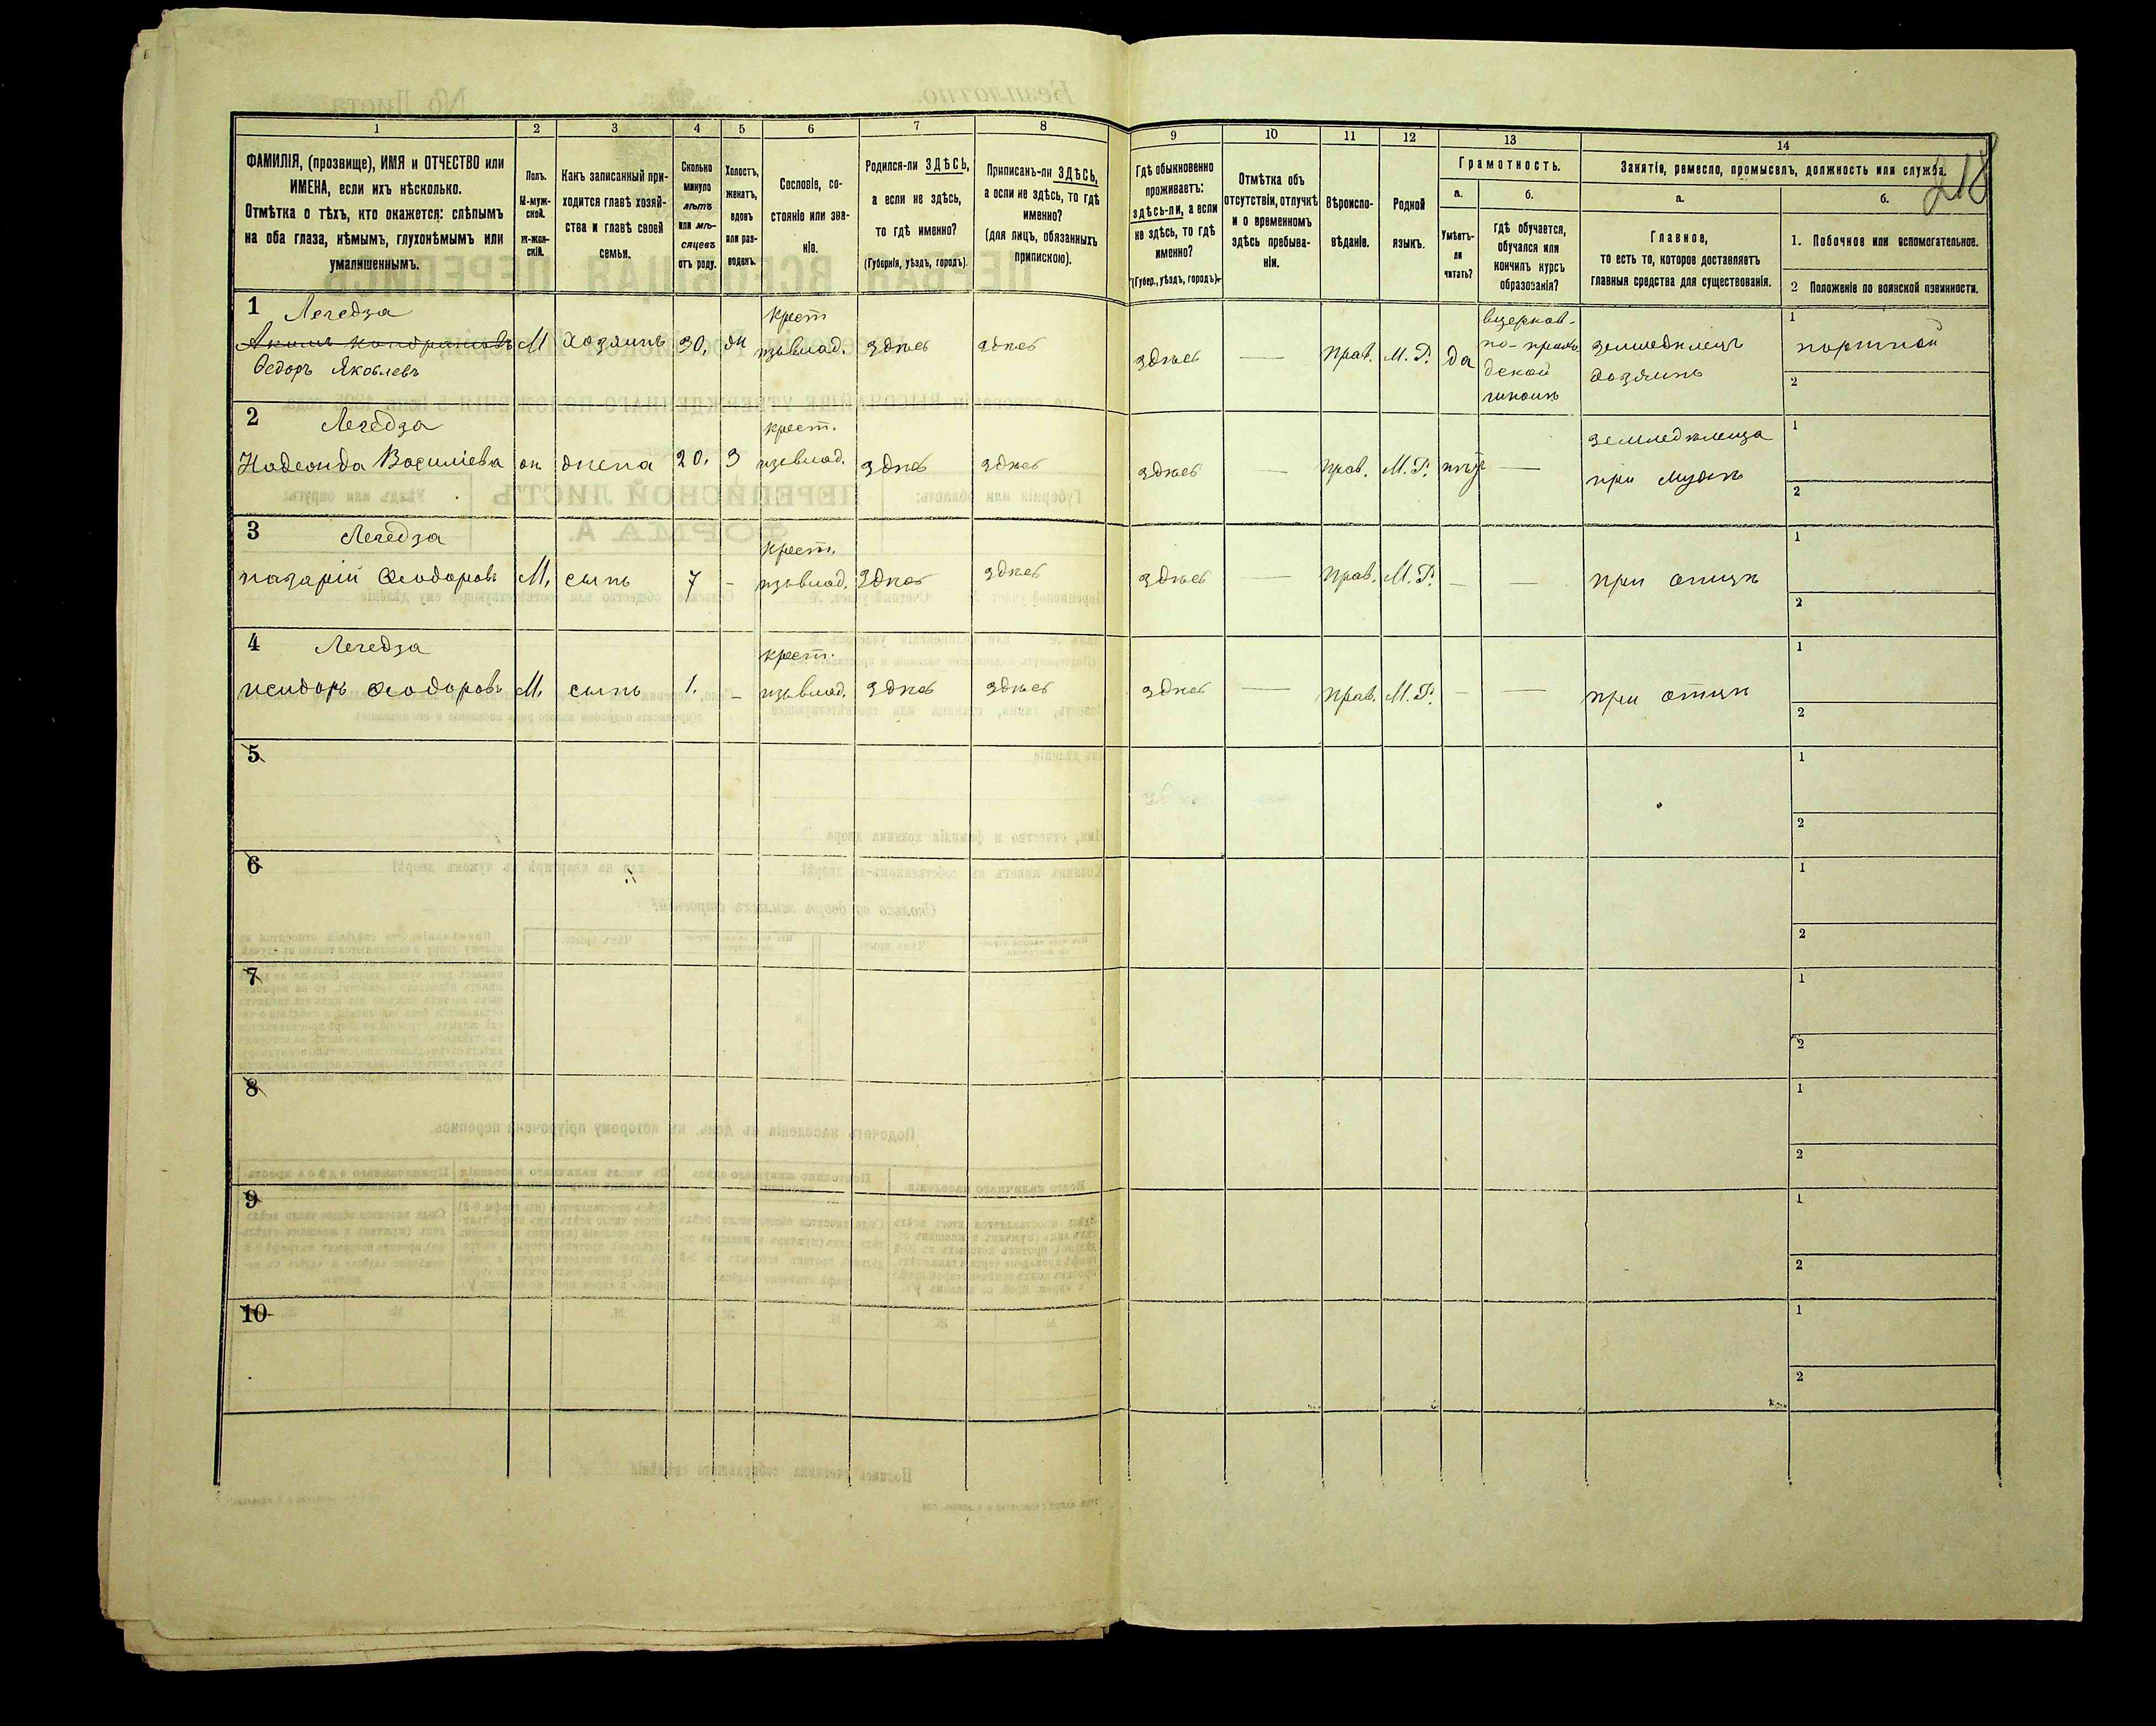 1 2 3 4 5 6 7 8 9 10 11 12 13 14
218
ФАМИЛІЯ, (прозвище), ИМЯ и ОТЧЕСТВО или
ИМЕНА, если ихъ нѣсколько.
Отмѣтка о тѣхъ, кто окажется: слѣпымъ
на оба глаза, нѣмымъ, глухонѣмымъ или
умалишеннымъ.
Полъ.
М-муж-
ской.
ж-жен-
скій.
Какъ записанный при-
ходится главѣ хозяй-
ства и главѣ своей
семьи.
Сколько
минуло
лѣтъ
или мѣ-
сяцевъ
отъ роду.
Холостъ,
женатъ,
вдовъ
или раз-
веденъ.
Сословіе, со-
стояніе или зва-
ніе.
Родился-ли ЗДѢСЬ,
а если не здѣсь,
то гдѣ именно?
(Губернія, уѣздъ, городъ).
Приписанъ-ли ЗДѢСЬ,
а если не здѣсь, то гдѣ
именно?
(для лицъ, обязанныхъ
припискою).
Гдѣ обыкновенно
проживаетъ:
здѣсь-ли, а если
не здѣсь, то гдѣ
именно?
(Губер., уѣздъ, городъ).
Отмѣтка объ
отсутствіи, отлучкѣ
и о временномъ
здѣсь пребыва-
ніи.
Вѣроиспо-
вѣданіе.
Родной
языкъ.
Грамотность.
а.
Умѣетъ-
ли
читать?
б.
гдѣ обучается,
обучался или
кончилъ курсъ
образованія?
Занятіе, ремесло, промыселъ, должность или служба.
а.
Главное,
то есть то, которое доставляетъ
главныя средства для существованія.
б.
1. Побочное или вспомогательное.
2 Положеніе по воинской повинности.
1 Легедза
Федоръ Яковлевъ
М хозяинъ 30. ж
крест
изъ влад. здѣсь здѣсь здѣсь — прав. М. Р. да
вцерков-
но-прихо
дской
школѣ
земледѣлецъ
хозяинъ
1 портной
2
2 Легедза
Надежда Василіева ж жена 20. З
крест.
изъ влад. здѣсь здѣсь здѣсь — прав. М. Р. нѣт —
земледѣлица
при мужѣ
1
2
3 Легедза
назарій Феодоровъ М. сынъ 7 -
крест.
изъ влад. здѣсь здѣсь здѣсь — прав. М. Р. — —
при отцѣ
1
2
4 Легедза
исидоръ Феодоровъ М. сынъ 1. -
крест.
изъ влад. здѣсь здѣсь здѣсь — прав. М. Р. — —
при отцѣ
1
2
5
1
2
6
1
2
7
1
2
8
1
2
9
1
2
10
1
2